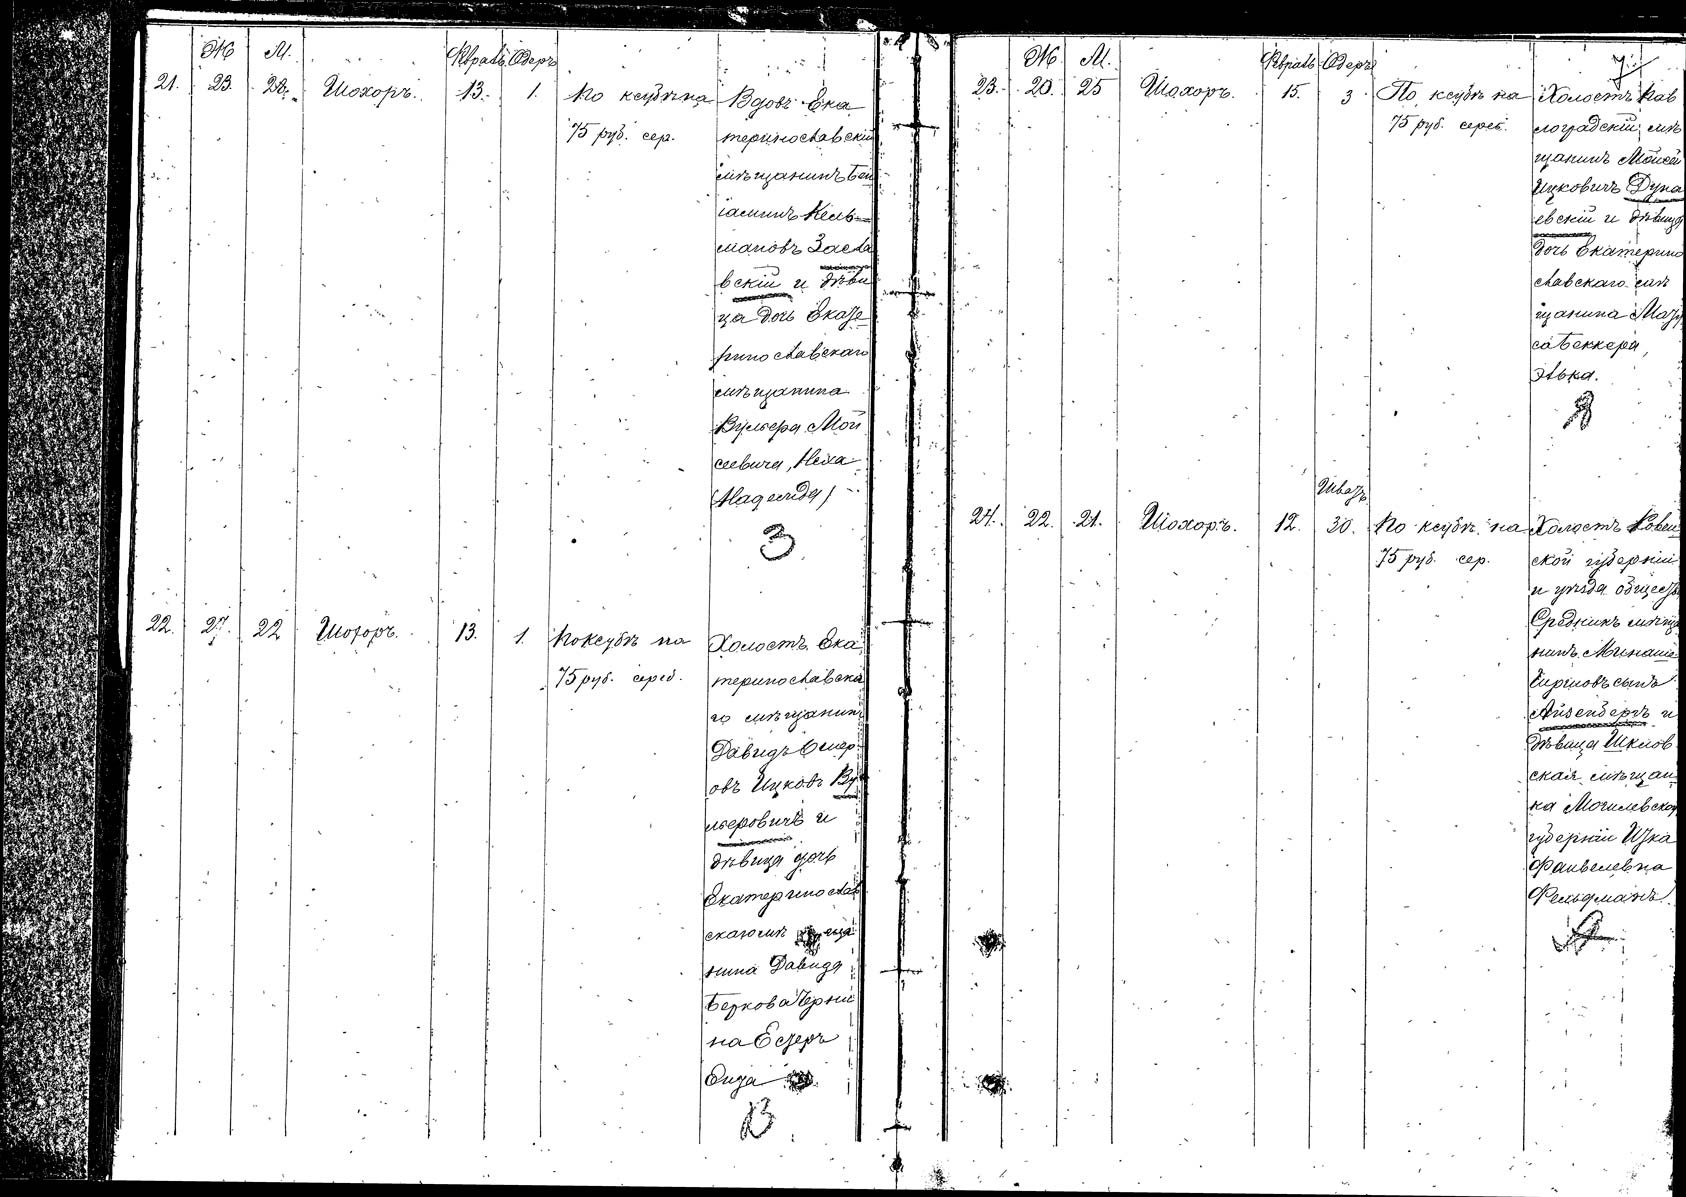 Ж М. Февраль Одеръ
21. 23. 28. Шохоръ. 13. 1. По ксубѣ на
75 руб. сер.
Вдовъ Ека
теринославскій
мѣщанинъ Бен
іаминъ Кель-
мановъ Засла
вскій и дѣви
ца дочь Екате
ринославскаго
мѣщанина
Вульфа Мой
сеевича, Неха
(Надежда)
З
22. 27. 22 Шохоръ. 13. 1. По ксубѣ на
75 руб. сереб.
Холостъ Ека
теринославска
го мѣщанинъ
Давидъ
овъ Ицковъ Ву
льфовичъ и
дѣвица дочь
Екатеринослав
скаго мѣ ща
нина Давида
Беркова Черни
на Естеръ
Енда
В
7
Ж М. Февраль Одеръ
23. 20. 25 Шохоръ. 15. 3 По ксубѣ на
75 руб. сереб.
Холостъ Пав
лоградскій мѣ
щанинъ Мойсей
Ицковичъ Дуна
евскій и дѣвица
дочь Екатерино
славскаго мѣ
щанина
Беккера,
Элька.
Д
Шватъ
24. 22. 21. Шохоръ. 12. 30. По ксубѣ на
75 руб. сер.
Холостъ Ковен
ской губерніи
и уѣзда обществ
Средникъ мѣща
нинъ Минаша
сынъ
Айзенбергъ и
дѣвица Шклов
ская мѣщан
ка Могилевской
губерніи Итка
Файвелевна
Фельдманъ.
А